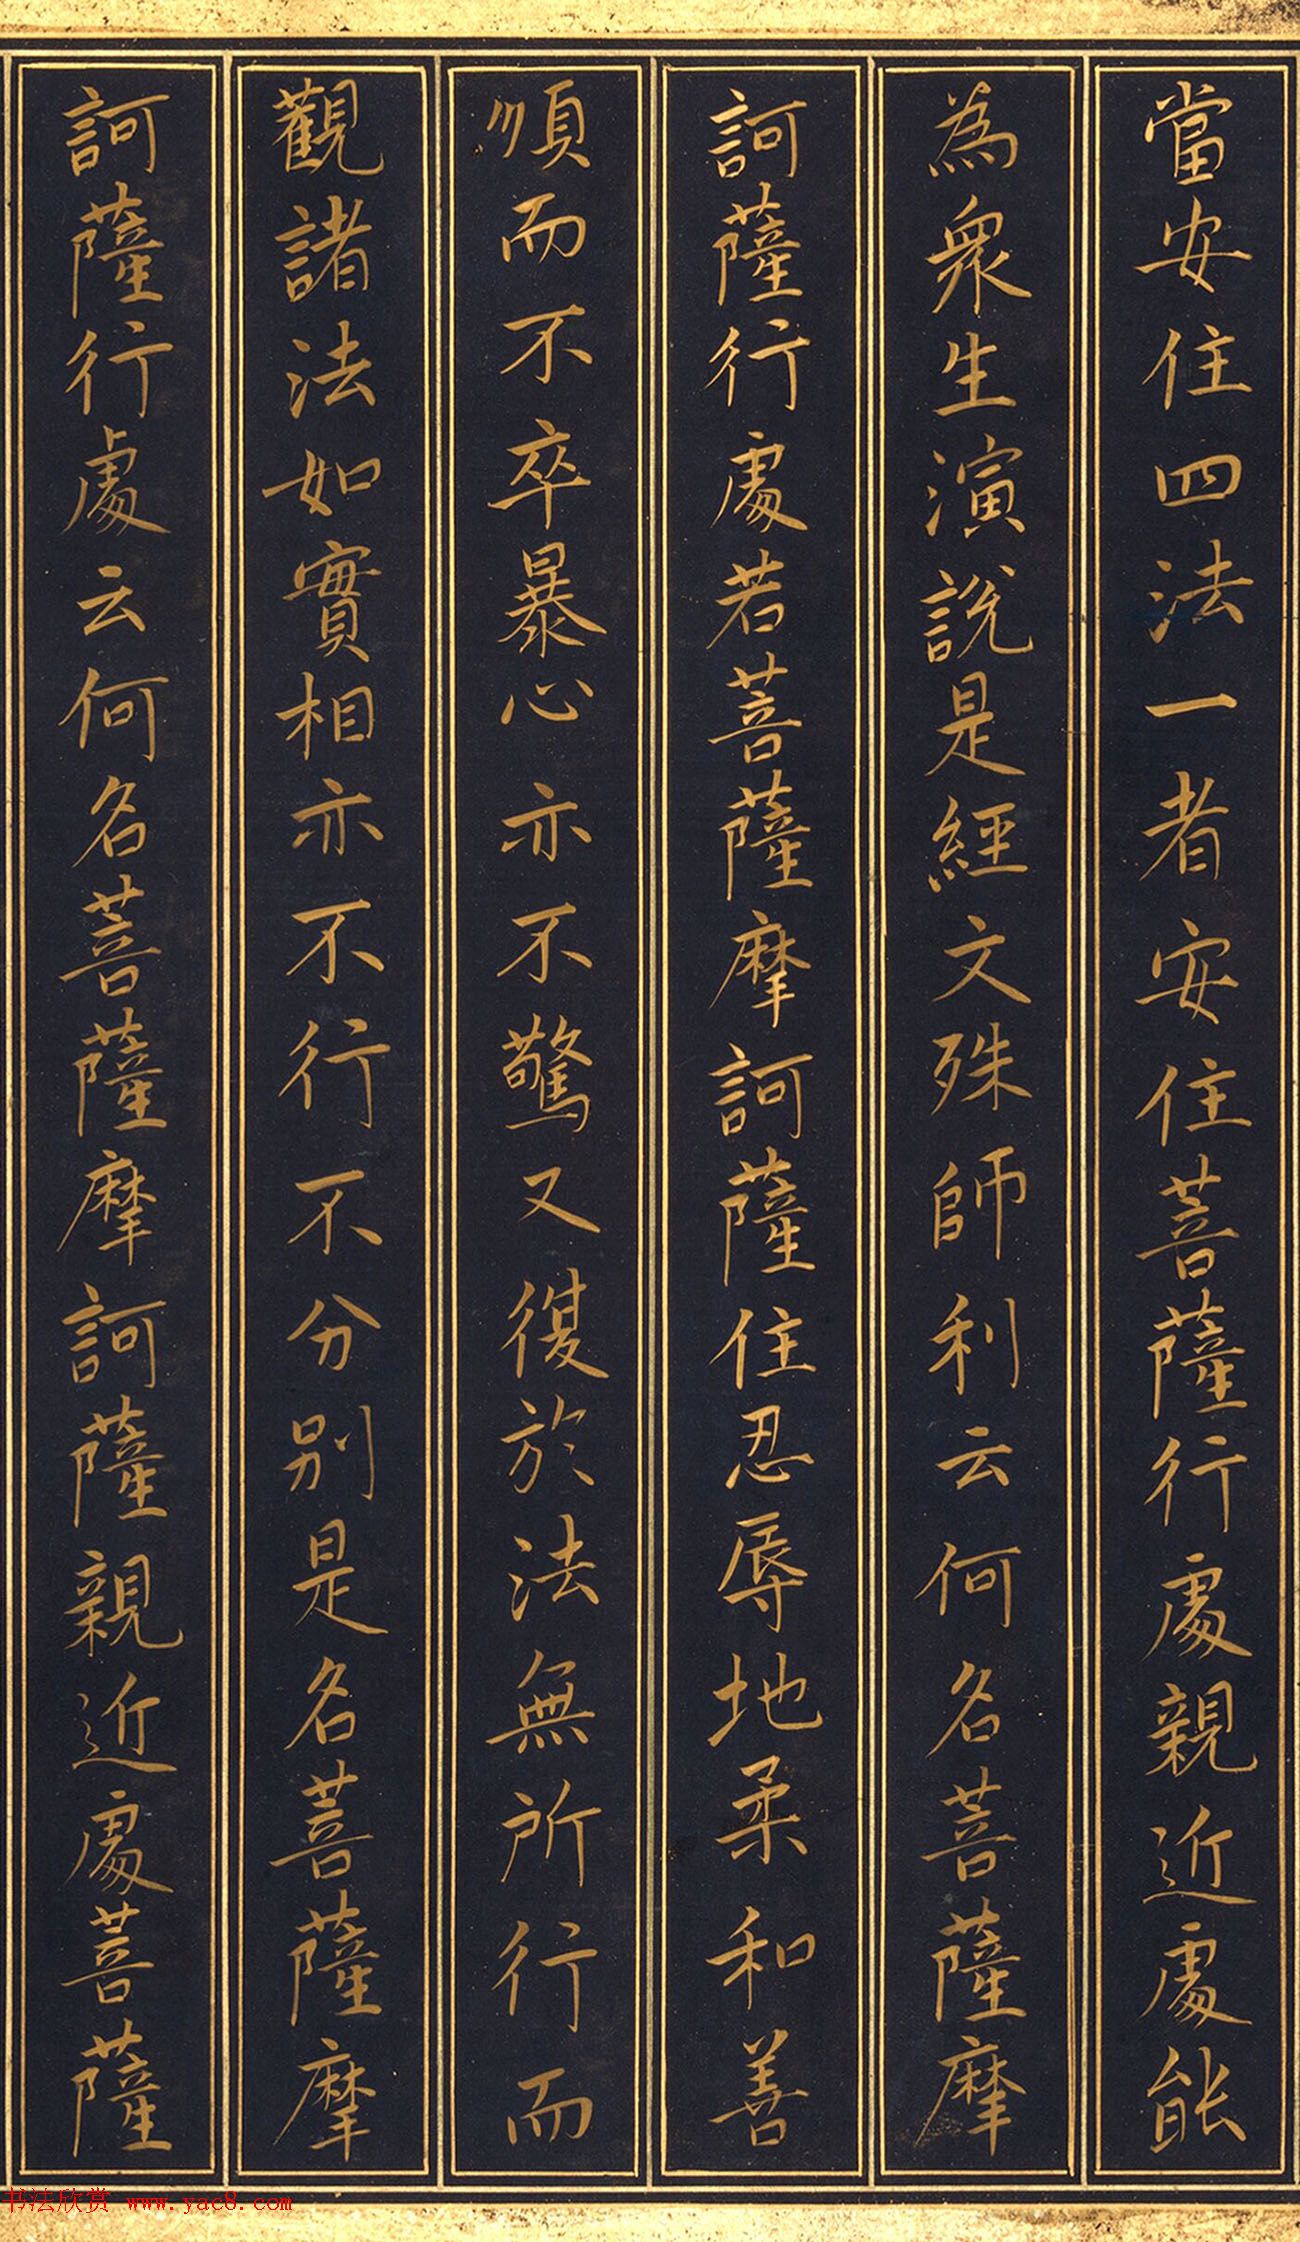 當安住四法一者安住菩薩行處親近處能
為衆生演說是經文殊師利云何名菩薩摩
訶薩行處若菩薩摩訶薩住忍辱地柔和善
順而不卒暴心亦不驚又復於法無所行而
觀諸法如實相亦不行不分別是名菩薩摩
訶薩行處云何名菩薩摩訶薩親近處菩薩
书法欣赏 www.yac8.com